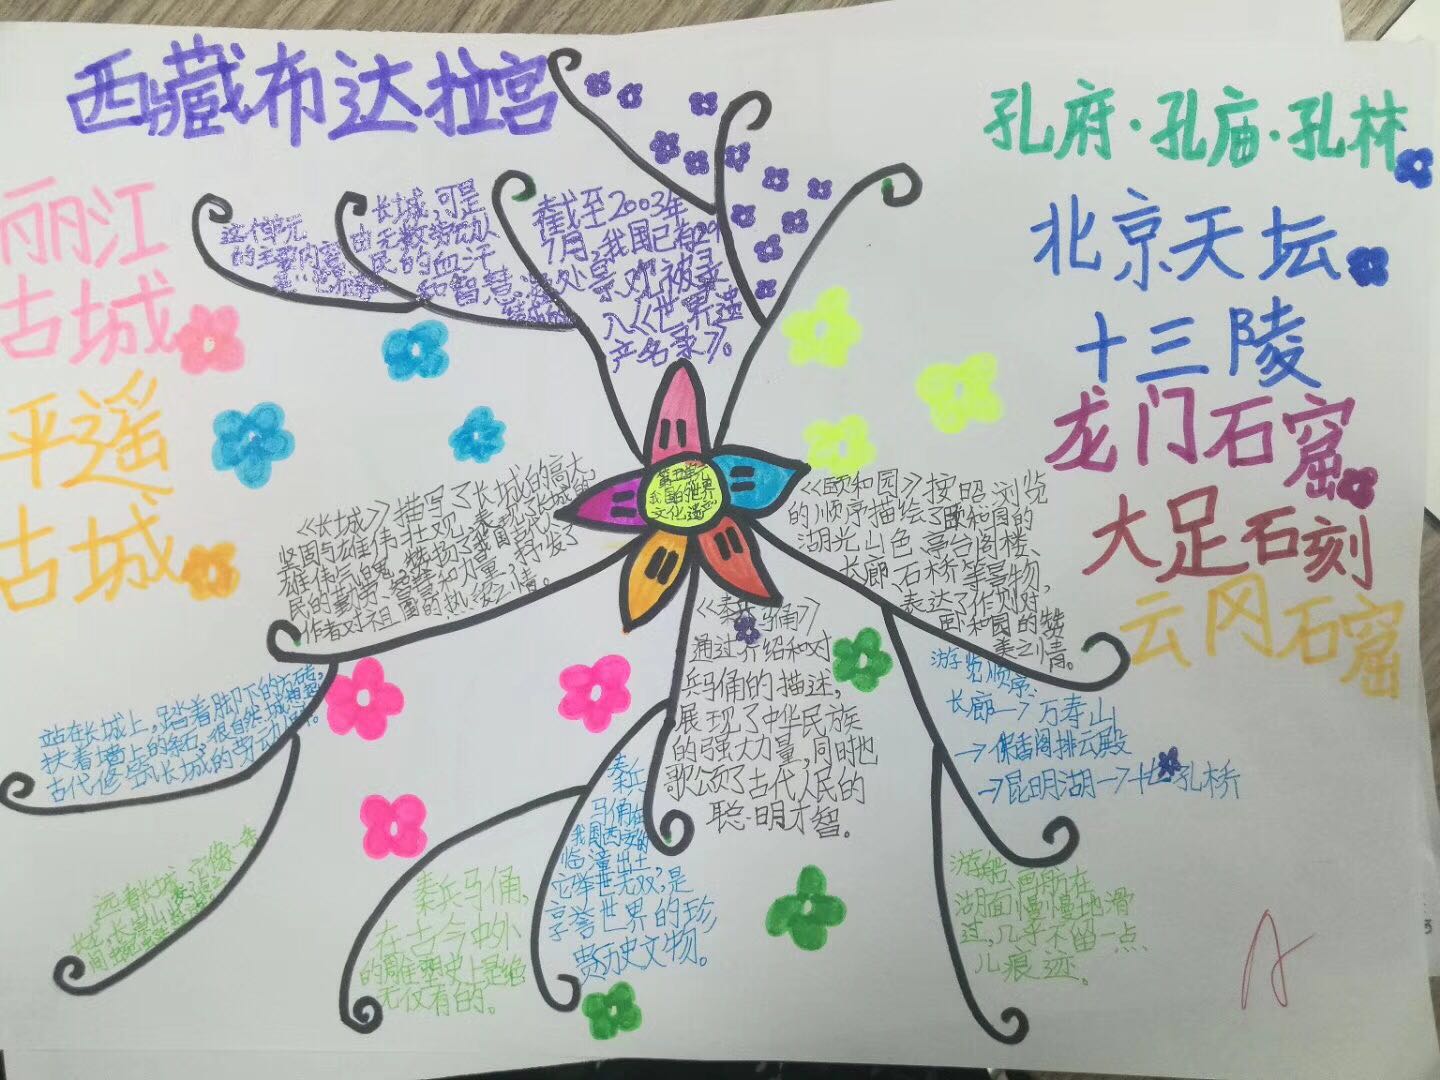 西藏布达拉宫
丽江
古城
平遥
古城
孔府·孔庙·孔林
北京天坛
十三陵
龙门石窟
大足石刻
云冈石窟
这个单元
的主要内容
长城,可是
由无数劳动人
民的血汗
和智慧
截至2003年
7月,我国已有29
处景观被录
入《世界遗
产名录》。
第五单元
我国的世界
文化遗产
《长城》描写了长城的高大,
坚固与雄伟壮观,表现长城的
雄伟气魄,赞扬了我国古代人
民的勤劳、智慧和力量,抒发了
作者对祖国的热爱之情。
站在长城上,踏着脚下的方砖,
扶着墙上的条石,很自然地想起
古代修筑长城的劳动人民。
远看长城,它像一条
长龙,在崇山峻岭之
间蜿蜒盘旋
《颐和园》按照浏览
的顺序描绘了颐和园的
湖光山色、亭台阁楼、
长廊石桥等景物,
表达了作则对
颐和园的赞
美之情。
游览顺序
长廊→万寿山
→佛香阁排云殿
→昆明湖→十七孔桥
游船、画舫在
湖面慢慢地滑
过,几乎不留一点
儿痕迹。
《秦兵马俑》
通过介绍和对
兵马俑的描述,
展现了中华民族
的强大力量,同时也
歌颂了古代人民的
聪明才智。
秦兵
马俑在
我国西安的
临潼出土
它举世无双,是
享誉世界的珍
贵历史文物。
秦兵马俑,
在古今中外
的雕塑史上是绝
无仅有的。
A